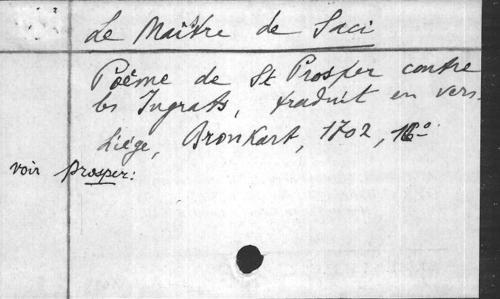 Le Maître de Saci
Poême de St Prosper contre
les Ingrats, traduit en vers.
Liége, Bronkart, 1702, 16°
voir Prosper: